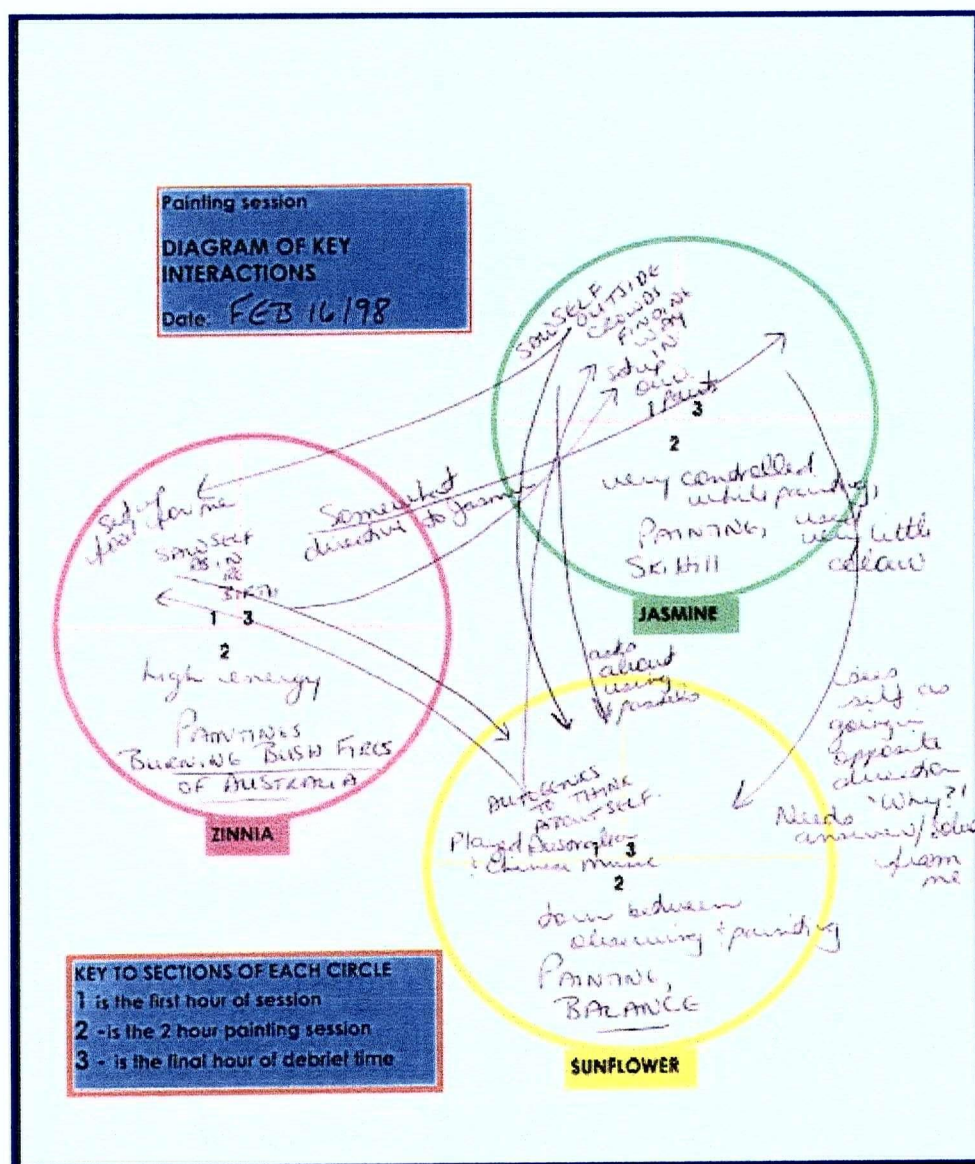 Painting session
DIAGRAM OF KEY
INTERACTIONS
Date: FEB 16/98
SAW SELF
OUTSIDE
CROWDS
FINDING
WAY
IN
setup
own
paints
1 3
2
very controlled
while painting,
used
very little
colour
PAINTING,
Ski Hill
JASMINE
Somewhat
directive to Jasmine
for me
SAW SELF
AS IN
RE
BIRTH
1 3
2
high energy
PAINTINGS
BURNING BUSH FIRES
OF AUSTRALIA
ZINNIA
asks
about
using
pastels
sees
self as
going in
opposite
direction
Needs "Why?"
answer/
from
me
TO THINK
ABOUT SELF.
Played
+ Chinese Music
1 3
2
torn between
observing + painting
PAINTING,
BALANCE
SUNFLOWER
KEY TO SECTIONS OF EACH CIRCLE
1 is the first hour of session
2 -is the 2 hour painting session
3 - is the final hour of debrief time